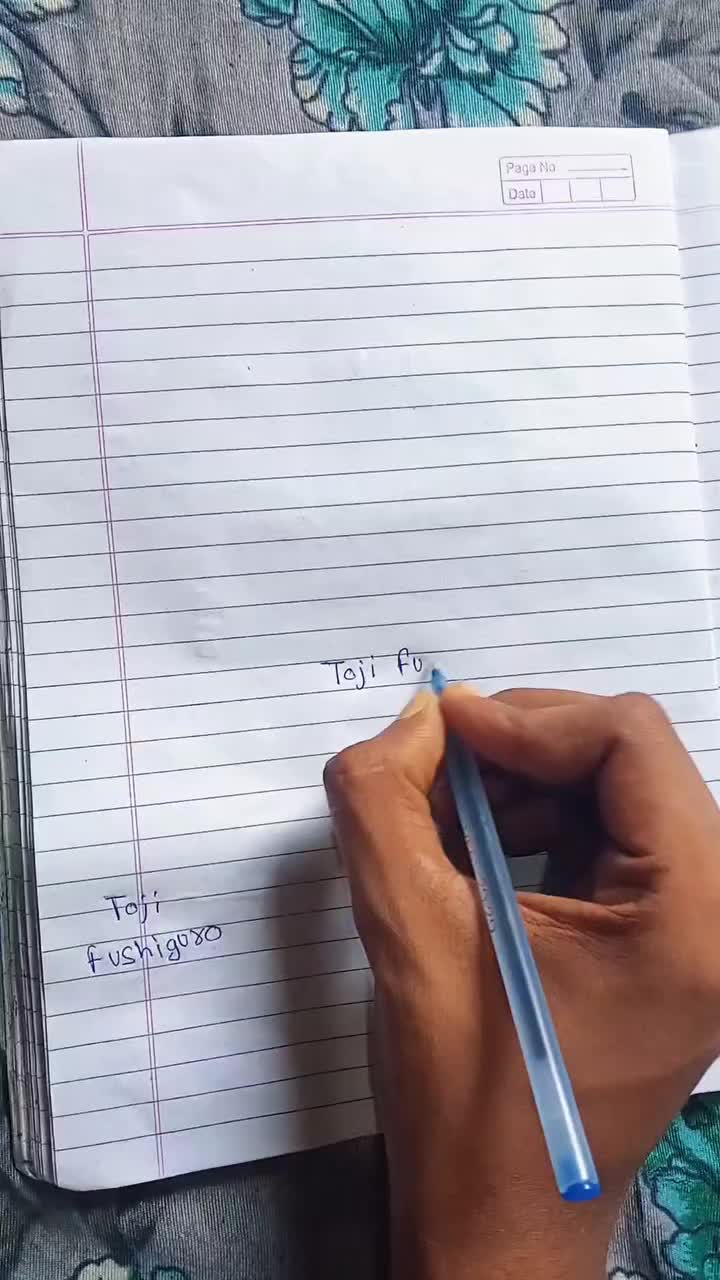 Page No
Date
Toji fu
Toji
fushiguro